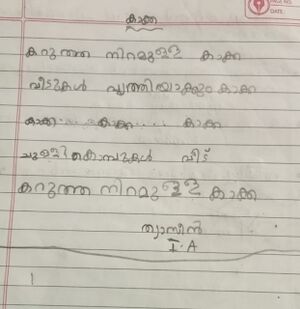 കാക്ക
കറുത്ത നിറമുള്ള കാക്ക
വീടുകൾ വൃത്തിയാക്കും കാക്ക
കാക്ക.... കാക്ക.... കാക്ക
ചുള്ളികൊമ്പുകൾ വീട്
കറുത്ത നിറമുള്ള കാക്ക
I.A
PAGE NO.
DATE: